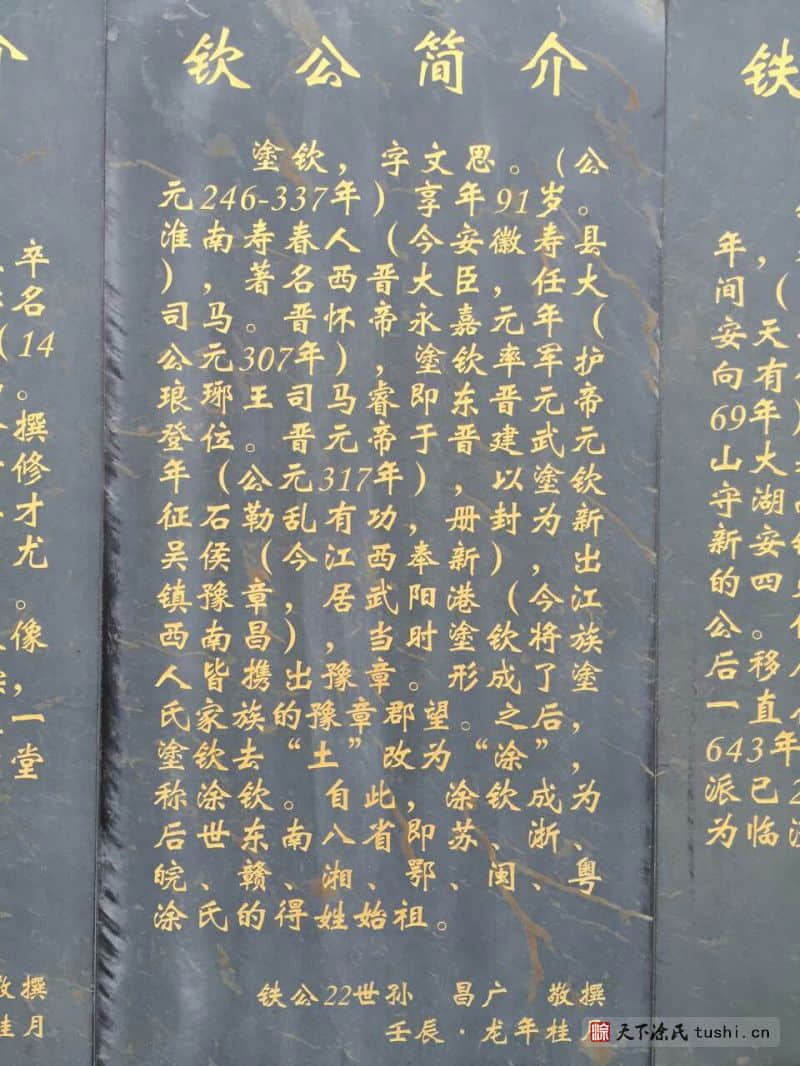 钦公简介
塗钦，字文思。（公
元246-337年）享年91岁。
淮南寿春人（今安徽寿县
），著名西晋大臣，任大
司马。晋怀帝永嘉元年（
公元307年），塗钦率军护
琅琊王司马睿即东晋元帝
登位。晋元帝于晋建武元
年（公元317年），以塗钦
征石勒乱有功，册封为新
吴侯（今江西奉新），出
镇豫章，居武阳港（今江
西南昌），当时塗钦将族
人皆携出豫章。形成了塗
氏家族的豫章郡望。之后，
塗钦去“土”改为“涂”，
称涂钦。自此，涂钦成为
后世东南八省即苏、浙、
皖、赣、湘、鄂、闽、粤
涂氏的得姓始祖。
铁公22世孙 昌广 敬撰
壬辰·龙年桂月
卒
名
（14
。
撰
修
才
尤
。
像
，
一
堂
撰
桂月
铁
年，
间（
安天
向有
69年
山大
守湖
新安
的四
公。
后移
一直
643年
派已2
为临
天下涂氏 tushi.cn